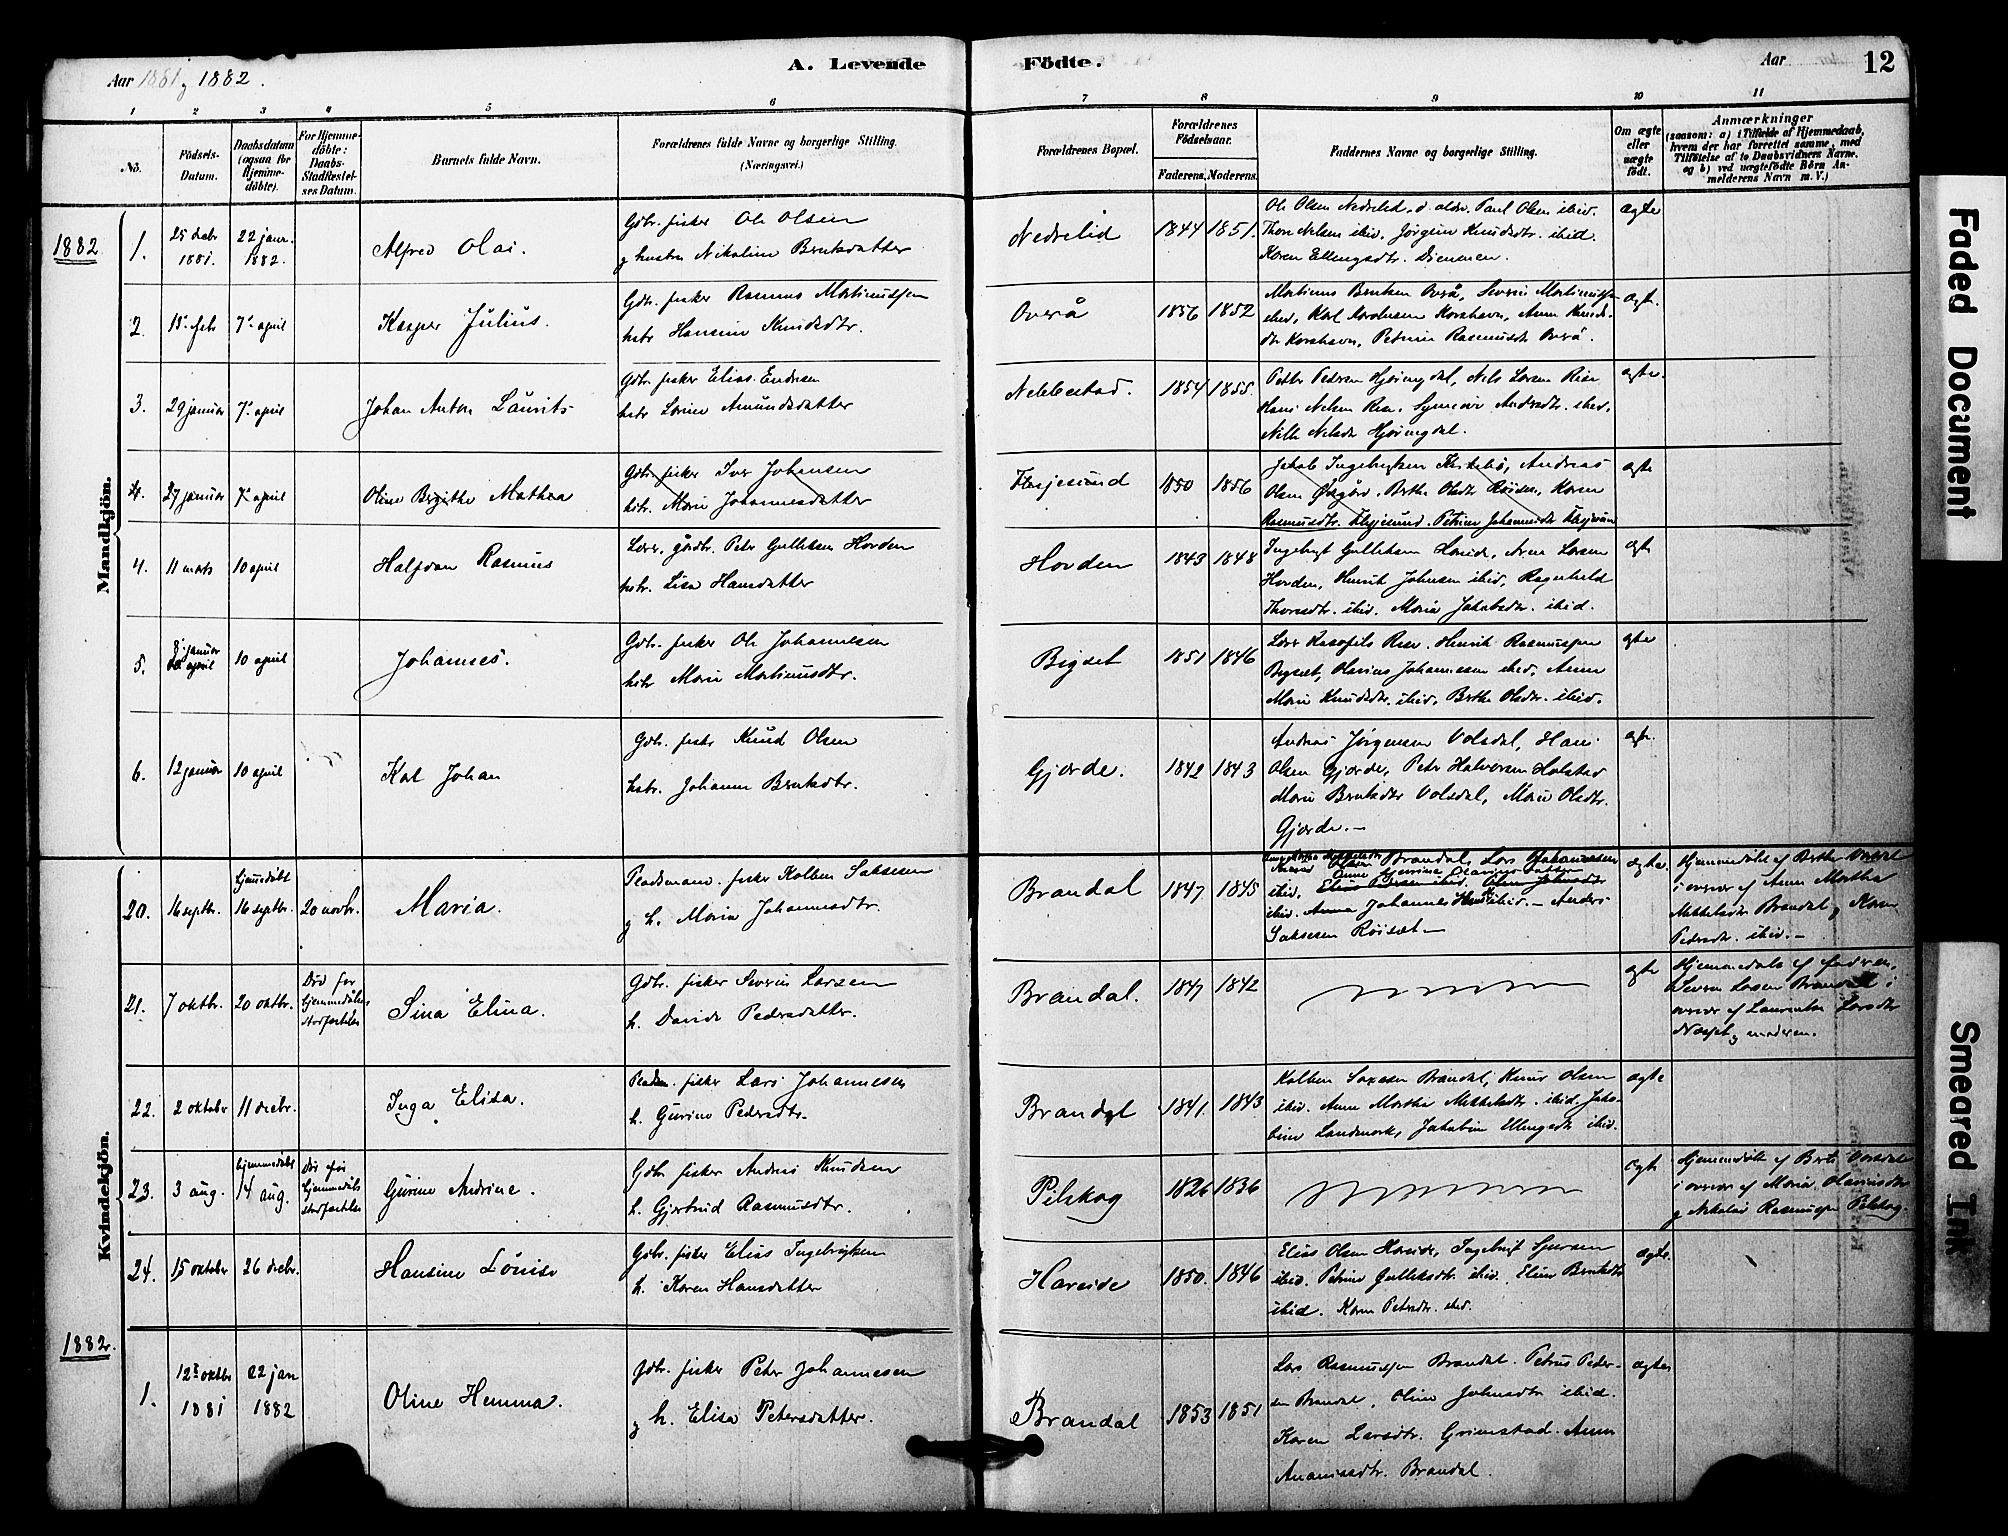 Aar 1881 g 1882.
A. Levende
Födte.
Aar
12
1 2 3 4 5 6 7 8 9 10 11
No.
Födsels-
Datum.
Daabsdatum
(ogsaa for
Hjemme-
döbte).
For Hjemme-
döbte:
Daabs-
Stadfæstel-
ses Datum.
Barnets fulde Navn.
Forældrenes fulde Navne og borgerlige Stilling.
(Næringsvei.)
Forældrenes Bopæl.
Forældrenes
Födselsaar.
Faderens. Moderens.
Faddernes Navne og borgerlige Stilling.
Om ægte
eller
uægte
födt.
Anmærkninger
(saasom: a) i Tilfælde af Hjemmedaab,
hvem der har forrettet samme, med
Tilföielse af to Daabsvidners Navne.
og b) ved uægtefödte Börn An-
melderens Navn m. V.)
Mandkjön.
1882
1.
25 decbr
1881.
22 januar
1882.
Alfred Olai.
Gdbr. fisker Ole Olsen
g hustru Nikoline Berntsdatter
Nedrelid
1844 1851.
Ole Olsen Nedrelid, d. ældre. Paul Olsen ibid.
Thore Nelsen ibid. Jørgine Knudsdtr. ibid.
Karen Ellingsdtr. Dimmen.
ægte
2.
15 febr
7 april
Kasper Julius.
Gdbr. fisker Rasmus Martinussen
hstr Hansine Knudsdtr.
Overå
1856 1852
Martinus Berntsen Overå, Severin Martinussen
ibid, Karl Korshavn, Anne Knuds-
dtr Korshavn, Petrine Rasmusdtr Overå.
ægte.
3.
29 januar
7 april
Johan Anton Laurits
Gdbr. fisker Elias Endresen
hstr Lovise Amundsdatter
Nebbestad.
1854 1855.
Petter Petersen Hjøringdal, Nils Larsen Rise
Hans Nelsen Rise. Andersdtr. ibid.
Nille Nelsdtr Hjøringdal.
ægte.
4.
27 januar
7 april
Oline Birgithe Mathea
Gdbr. fisker Iver Johansen
hstr. Marie Johannesdatter
Flesjesund
1850 1856
Jakob Ingebrigtsen Andreas
Olsen Berthe Olsdtr Röisen, Karen
Rasmusdtr. Flesjesund. Petrine Johannesdtr Flesjesund
ægte
4.
11 marts
10 april
Halfdan Rasmus
Lærer, gårdbr. Petr Gulliksen Hovden
hstr. Lisa Hansdatter
Hovden
1843 1848
Ingebrigt Gulliksen Hareide, Arne Larsen
Hovden, Henrik Johnsen ibid, Ragnhild
Thoresdtr. ibid. Maria Jakobsdtr. ibid.
ægte
5.
8 januar
10 april
Johannes.
Gdbr. fisker Ole Johannesen
hstr Marie Martinusdtr.
Bigset
1851 1846
Lars Rasmus Rise. Henrik Rasmussen
Bigset, Olarius Johannessen ibid, Anne
Marie Knudsdtr. ibid, Berthe Olsdtr. ibid.
ægte
6.
12 januar
10 april
Karl Johan
Gdbr. fisker Knud Olsen
hstr. Johanne Berntsdtr.
Gjørde.
1842 1843
Andreas Jörgensen Volsdal, Hans
Olsen Gjørde, Petr Halvorsen Holstad
Marie Berntsdtr Volsdal, Marie Olsdtr.
Gjörde.—
ægte.
Kvindekjön.
20.
16 septbr.
hjemmedøbt
16 septbr.
20 novbr.
Maria.
Pladsmand. fisker Kolben Saksesen
g h. Maria Johannesdtr.
Brandal
1847 1845
Brandal, Lars Johannesen
ibid. Anna Johannes ibid.— Anders
Saksesen Röiset—
ægte.
Hjemmedøbt af Berthe
i overvær af Anne Martha
Mikkelsdtr Brandal g Karen
Pedersdtr. ibid.—
21.
7 oktbr.
20 oktbr.
Död før
hjemmedåbens
stadfæstelse
Sina Elina.
Gdbr. fisker Severin Larsen
h. Davide Pedersdatter.
Brandal.
1847 1842
ægte
Hjemmedøbt af faderen,
Severin Larsen Brandal i
overvær af Laurentse Larsdtr
g moderen.
22.
2 oktober
11 decbr.
Inga Elisa.
Pladsm. fisker Lars Johannesen
h. Gurine Pedersdtr.
Brandal
1841. 1843
Kolben Saxesen Brandal, Knud Olsen
ibid. Anne Martha Mikkelsdtr. ibid. Jako-
bine Landmark, Jakobine Ellingsdtr ibid.
ægte
23.
3 aug.
hjemmedøbt
14 aug.
Död før
hjemmedåbs
stadfæstelse
Gurine Andrine.
Gdbr. fisker Andreas Knudsen
h. Gjertrud Rasmusdtr.
Pilskog
1826 1836
ægte
Hjemmedøbt af Berte
i overvær af Maria Olavinusdtr
g Nikolai Rasmussen Pilskog.
24.
15 oktober
26 decbr.
Hansine Louise
Gdbr. fisker Elias Ingebrigtsen
h. Karen Hansdatter
Hareide
1850. 1846
Elias Olsen Hareide, Ingebrigt Sjursen
ibid. Petrine Gulliksdtr. ibid. Eline Berntsdtr
ibid. Karen Petersdtr. ibid.
ægte.
1882.
1.
12 oktbr
1881
22 jan
1882
Oline Hemma.
Gdbr. fisker Peter Johannesen
g h. Elisa Petersdatter.
Brandal
1853 1851
Lars Rasmussen Brandal. Petrus Peder-
sen Brandal, Oline Johnsdtr ibid.
Karen Larsdtr. Grimstad. Anne
Ananiasdtr. Brandal.
ægte
Faded Document
Smeared Ink